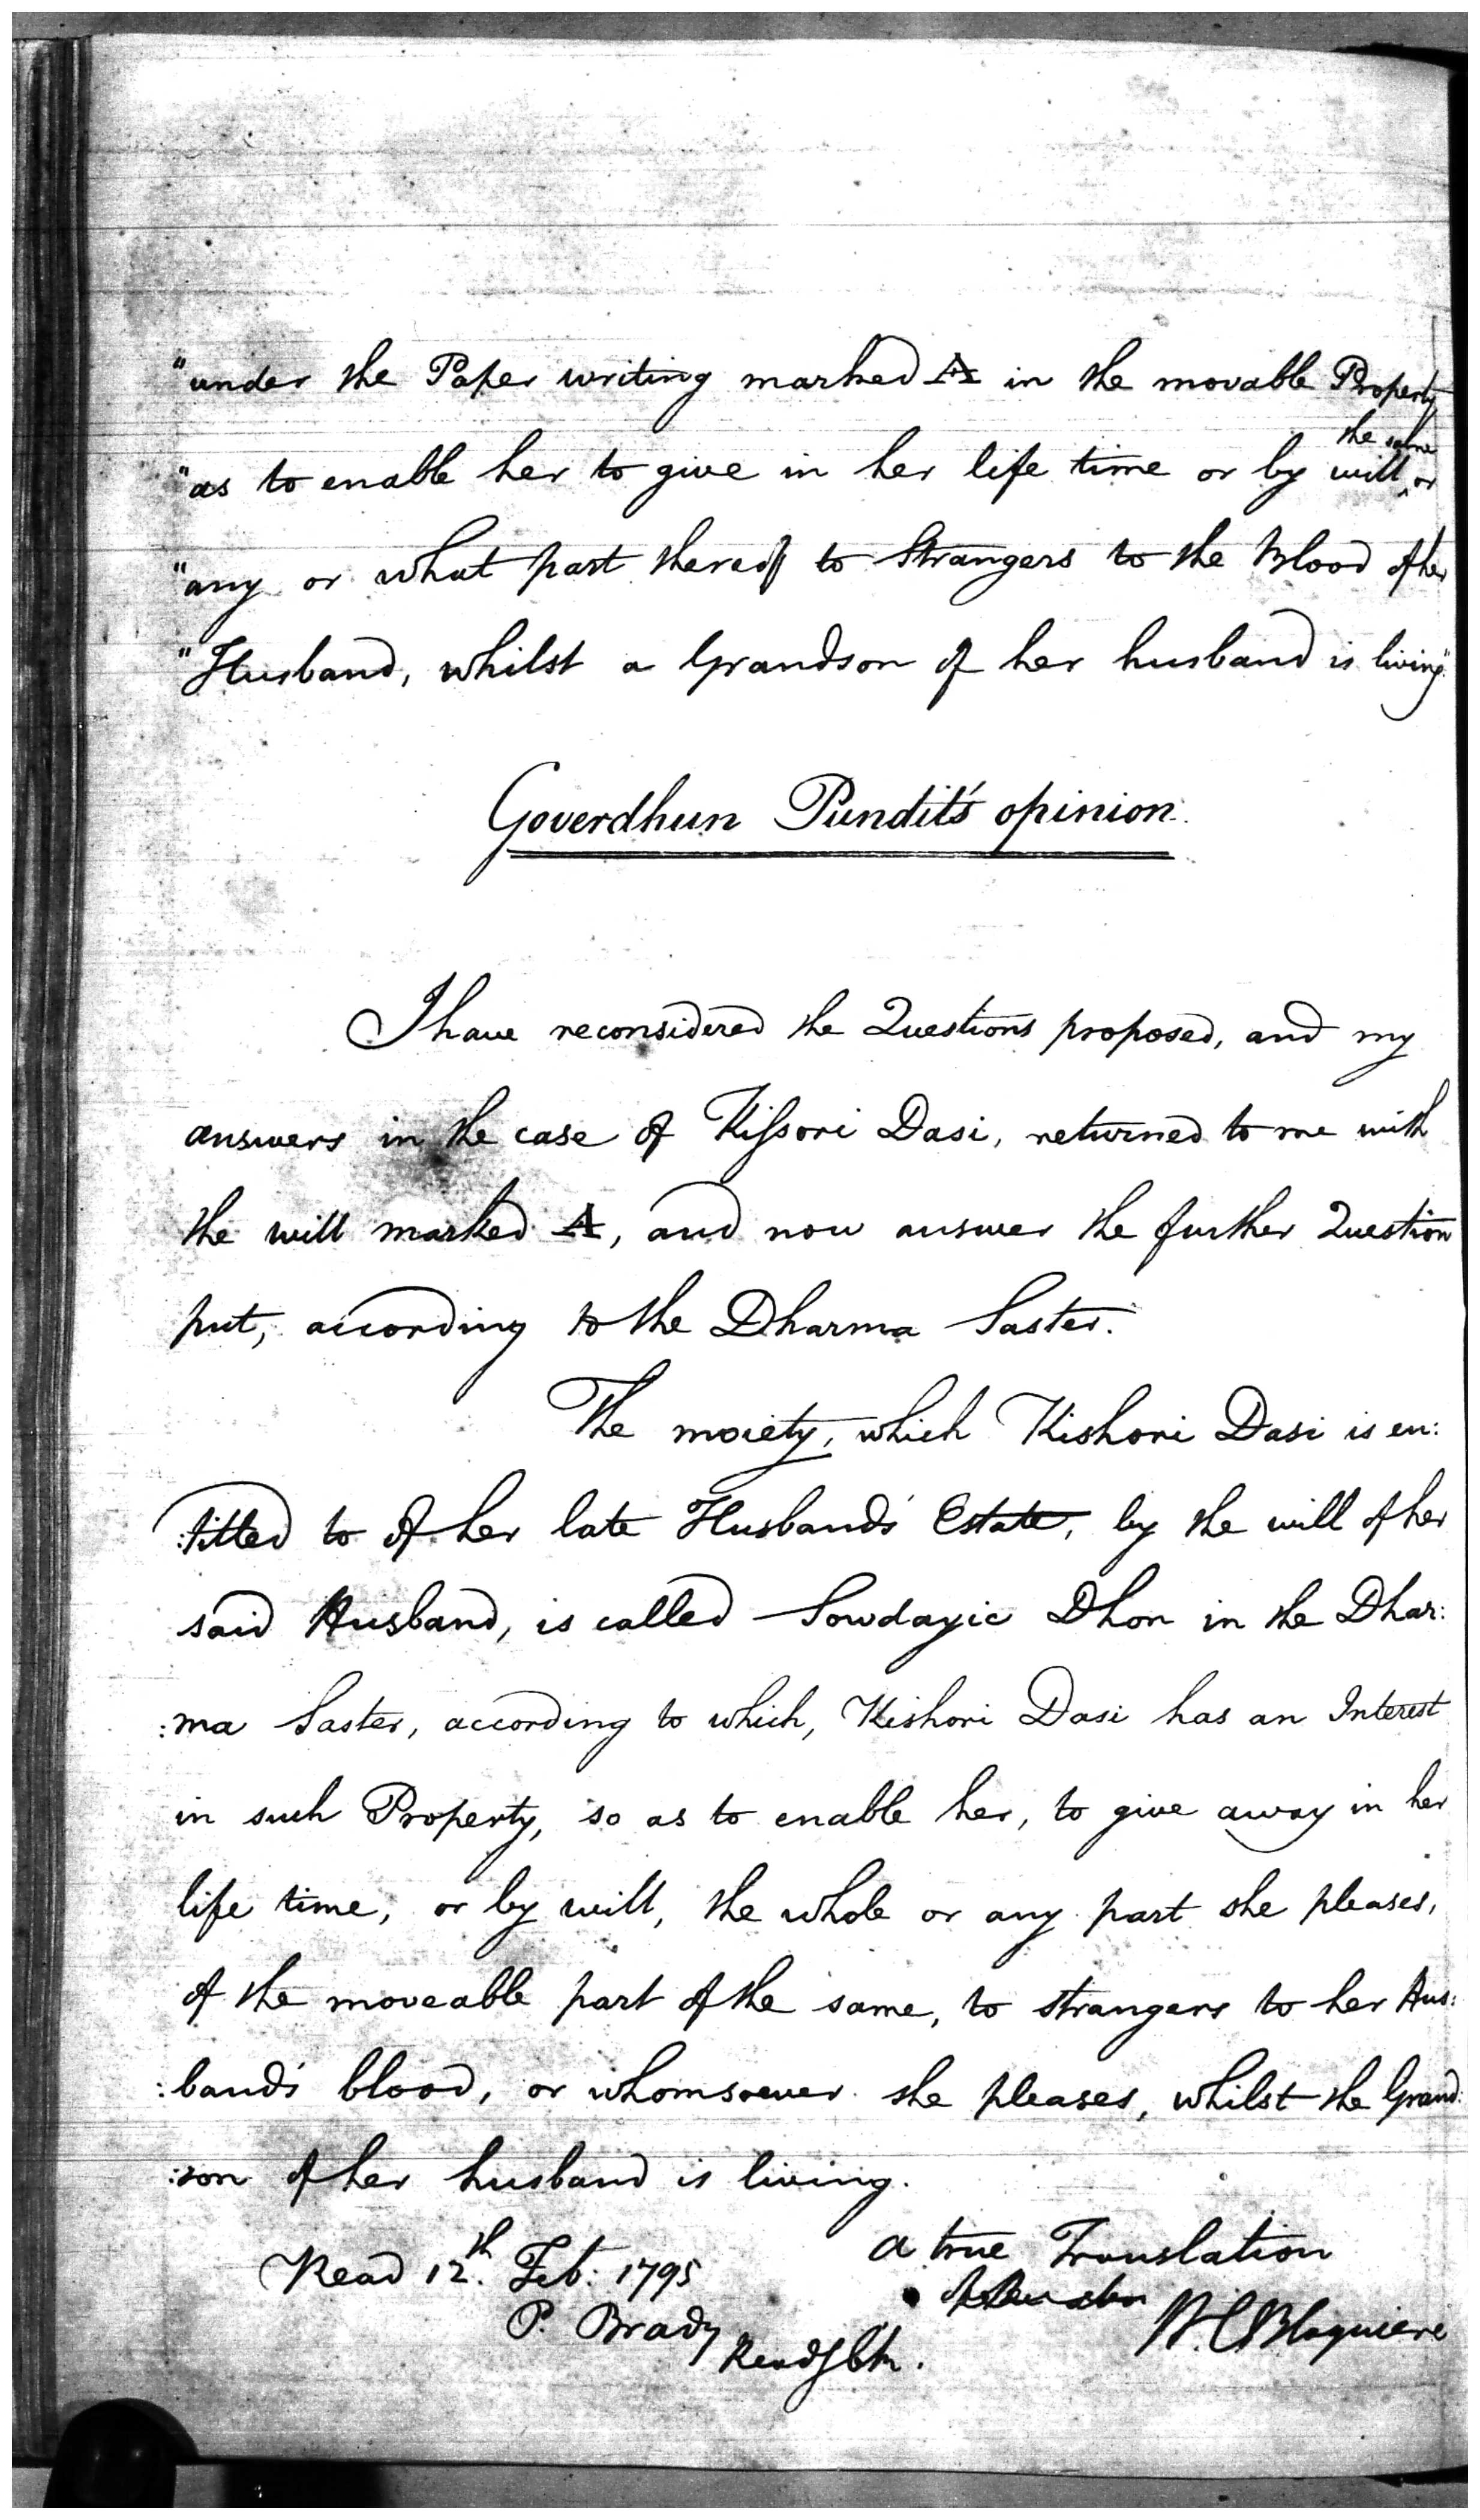 "under the Paper writing marked A in the movable Property
the same
"as to enable her to give in her life time or by will ‸ or
"any or what part thereof to Strangers to the Blood of her
"Husband, whilst a Grandson of her husband is living"
Goverdhun Pundit's opinion.
I have reconsidered the Questions proposed, and my
answers in the case of Kissori Dasi, returned to me with
the will marked A, and now answer the further Question
put, according to the Dharma Saster.
The moiety, which Kishori Dasi is en:
:titled to of her late Husband's Estate, by the will of her
said Husband, is called Sowdayic Dhon in the Dhar:
:ma Saster, according to which, Kishori Dasi has an Interest
in such Property, so as to enable her, to give away in her
life time, or by will, the whole or any part she pleases,
of the moveable part of the same, to strangers to her Hus:
:band's blood, or whomsoever she pleases, whilst the Grand:
:son of her husband is living.
a true Translation
Read 12th. Feb: 1795
P. Brady
W. C. Blaquiere